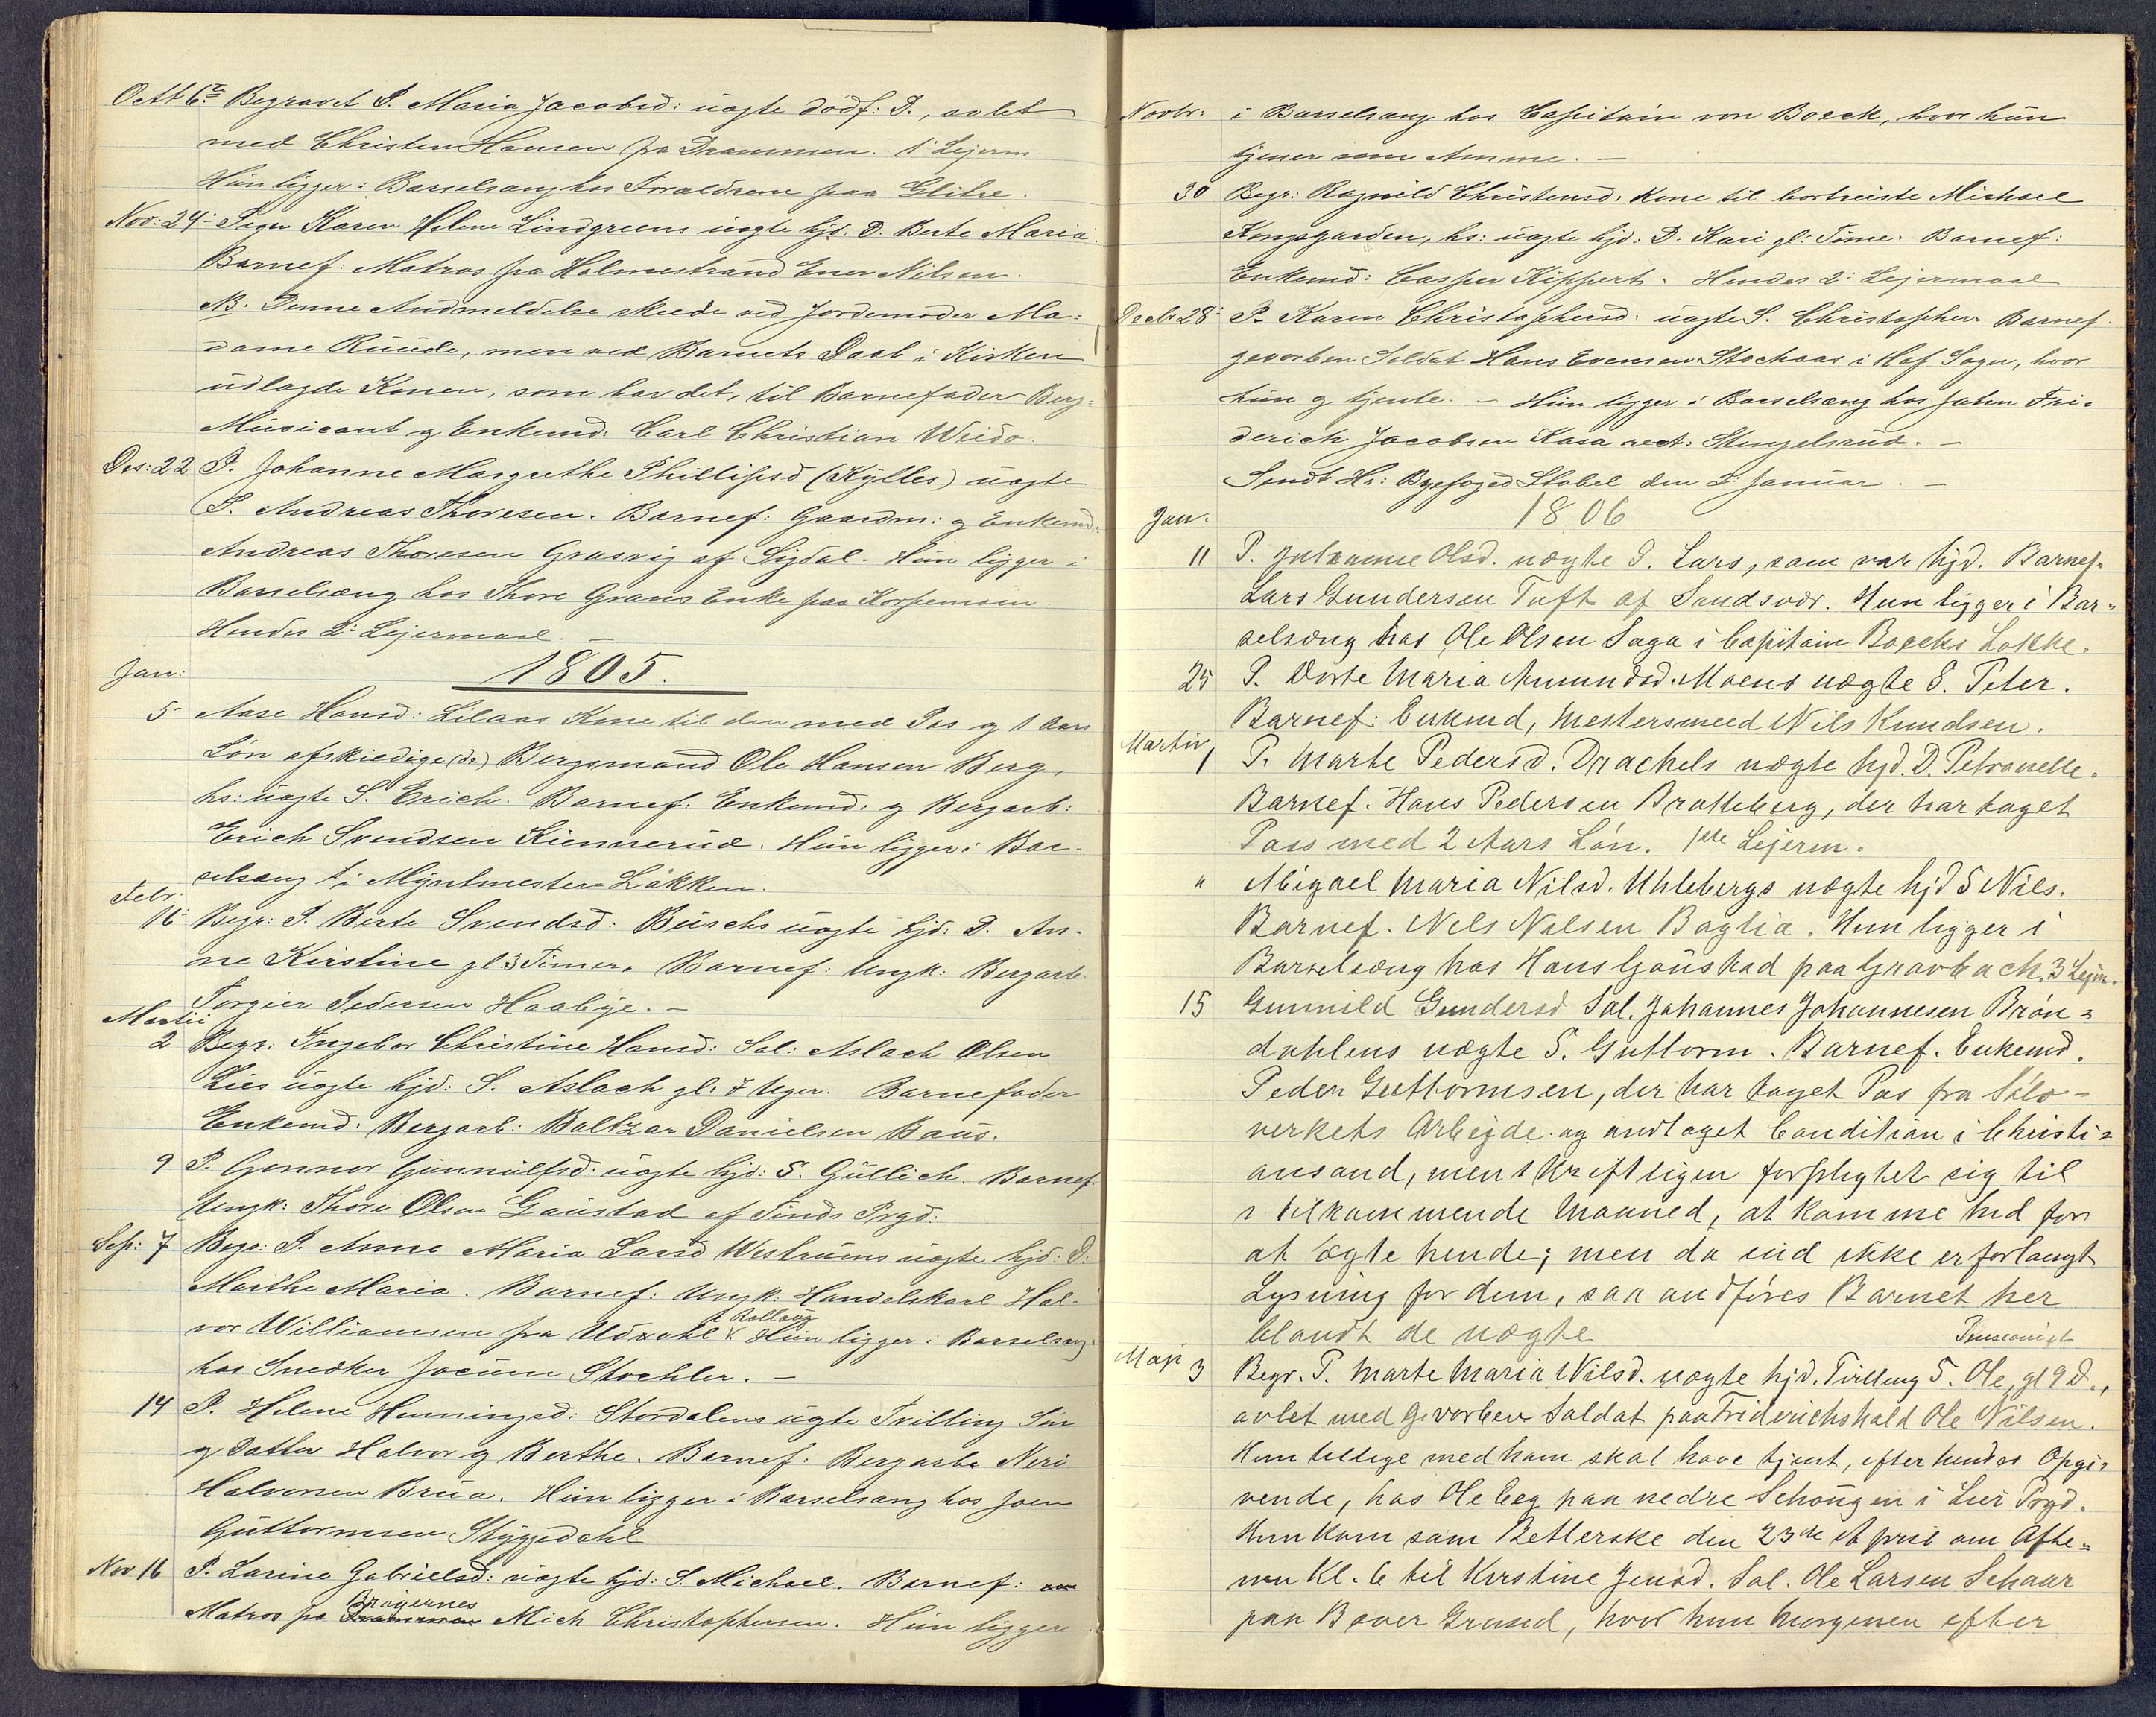 Octt 6te Begravet P. Maria Jacobsd: uægte dödf: D., avlet
med Christen Hansen fra Drammen. 1: Lejerm.
Hun ligger i Barselsæng hos Forældrene paa Glitre.
Nov: 24: Pigen Karen Helene Lindgreens uægte hjd: D. Berte Maria.
Barnef: Matros fra Holmestrand Ener Nilsen.
NB. Denne Andmeldelse skeede ved Jordemoder Ma=
dame Ruude, men ved Barnets Daab i Kirken
udlagde Konen, som bar det, til Barnefader Berg=
Musicant og Enkemd: Carl Christian Weido.
Des: 22 P. Johanne Margrethe Phillipsd (Kylles) uægte
S. Andreas Thoresen. Barnef: Gaardm: og Enkemd:
Andreas Thoresen Grasvig af Sigdal. Hun ligger i
Barselsæng hos Thore Grans Enke paa Korpemoen.
Hendes 2: Lejermaal. —
Jan: 1805.
5 Aase Hansd: Lilaas Kone til den med Pas og 1 Aars
Løn afskiedige(de) Bergmand Ole Hansen Berg,
hs: uægte S. Erich. Barnef: Enkemd: og Bergarb:
Erich Svendsen Kiennerud. Hun ligger i Bar-
selsæng i Myntmester-Løkken.
Febr:
16 Begr: P. Berte Svendsd: Buschs uægte hjd: D. An-
ne Kirstine gl 3 Timer. Barnef: Ungk: Bergarb.
Torgier Pedersen Haabye. —
Martii
2 Begr: Ingebor Christine Hansd: Sal: Aslach Olsen
Lies uægte hjd: S. Aslach gl: 7 Uger. Barnefader
Enkemd: Bergarb: Baltzar Danielsen Baus.
9 P. Gonnor Gunnulfsd: uægte hjd: S. Gullich. Barnef.
Ungk: Thore Olsen Gaustad af Tinds Prgd:
Sep: 7 Begr: P. Anne Maria Larsd Westrums uægte hjd: D.
Marthe Maria. Barnef: Ungk: Handelskarl Hal-
vor Williamsen fra Hun ligger i Barselsæng
hos Snedker Jocum Stochler. —
14 P. Helene Henningsd: Stordalens uægte Tvilling Søn
og Datter Halvor og Berthe. Barnef: Bergarb. Neri
Halvorsen Brua. Hun ligger i Barselsæng hos Joen
Guttormsen Styggedahl
Nov 16 P. Larine Gabrielsd: uægte hjd: S. Michael. Barnef:
Bragernes
Matros fra Drammen Mich Christophersen. Hun ligger
Novbr: i Barselsæng hos Capitain von Boeck, hvor hun
tjener som Amme. —
30 Begr: Ragnild Christensd: Kone til bortreiste Michael
Kongsgarden, hs: uægte hjd: D. Kari gl: Time. Barnef:
Enkemd: Casper Kippert. Hendes 2: Lejermaal
Decb: 28: P. Karen Christophersd: uægte S. Christopher Barnef:
gevorben Soldat Hans Evensen Stochaas i Hof Sogn, hvor
hun og tjente. — Hun ligger i Barselsæng hos Johan Fri=
derich Jacobsen Kasa rect: Stengelsrud. —
Sendt Hr: Byefoged Stabel den 2: Januar. —
Jan. 1806
11 P. Johanne Olsd. uægte S. Lars, som var hjd. Barnef.
Lars Gundersen Tuft af Sandsvær. Hun ligger i Bar=
selsæng hos Ole Olsen Saga i Capitain Boecks Løkke.
25 P. Dorte Maria Amundsd. Moens uægte S. Peter.
Barnef: Enkemd, Mestersmeed Nils Knudsen.
Martiv
1 P. Marte Pedersd. Drachels uægte hjd. D. Petronelle.
Barnef. Hans Pedersen Bratteberg, der har taget
Pass med 2 Aars Løn. 1ste Lejerm.
" Abigael Maria Nilsd. Uhlebergs uægte hjd S Nils.
Barnef. Nels Nelsen Baglia. Hun ligger i
Barselsæng hos Hans Gauskad paa Gravbæck. 3 Lejm.
15 Gunnild Gundersd Sal. Johannes Johannesen Brøn=
dahlens uægte S. Guttorm. Barnef. Enkemd.
Peder Guttormsen, der har taget Pas fra Sølv-
verkets Arbejde og andtaget Condition i Christi=
ansand, men skriftligen forpligtet sig til
i tilkommende Maaned, at komme hid for
at ægte hende; men da end ikke er forlangt
Lysning for dem, saa andføres Barnet her
blandt de uægte
Maji 3 Begr. P. Marte Maria Nilsd. uægte hjd. Tvilling S. Ole, gl 9 D.,
avlet med gevorben Soldat paa Friderichshald Ole Nilsen.
Hun tillige med ham skal have tjent, efter hendes Opgi=
vende, hos Ole Ceg paa nedre Schougen i Lier Prgd.
Hun kom som Betlerske den 23de April om Afte=
nen Kl. 6 til Kirstine Jensd. Sal. Ole Larsen Schaar
paa Bover Grund, hvor hun Morgenen efter